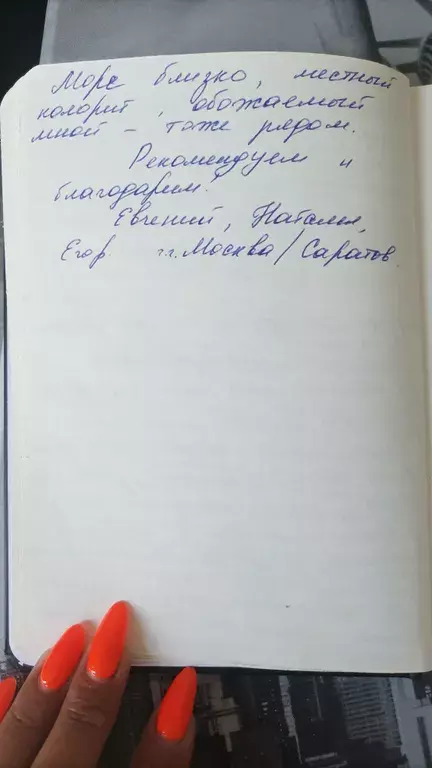 Море близко, местный
колорит, обожаемый
мной – тоже рядом.
Рекомендуем и
благодарим!
Евгений, Наталия,
Егор. г.г. Москва/Саратов.